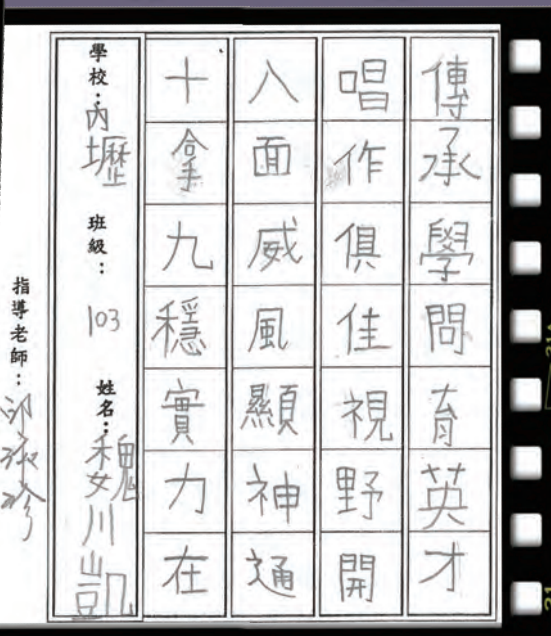 傳承學問育英才
唱作俱佳視野開
八面威風顯神通
十拿九穩實力在
學校：內壢 班級：103 姓名：魏川凱
指導老師：邱淑珍